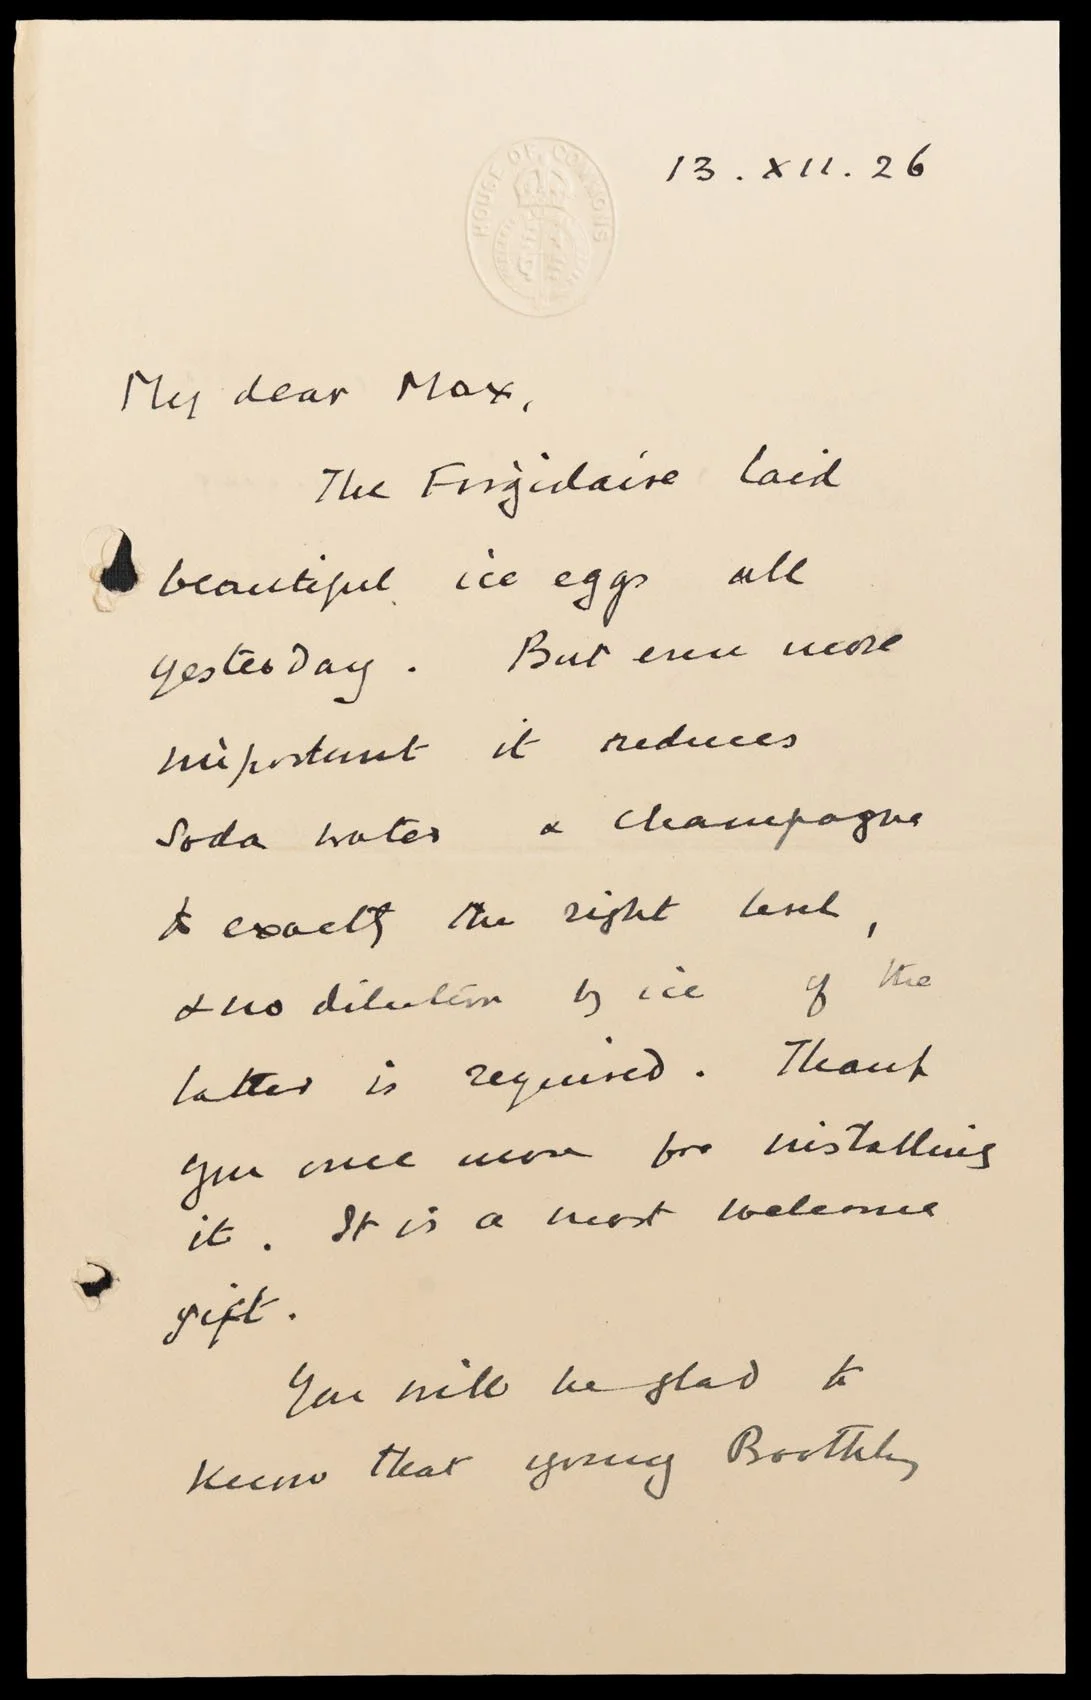 HOUSE OF COMMONS
13.XII.26
My dear Max,
The Frigidaire laid
beautiful ice eggs all
yesterday. But even more
important it reduces
Soda water & champagne
to exactly the right level,
& no dilution by ice of the
latter is required. Thank
you once more for installing
it. It is a most welcome
gift.
You will be glad to
know that young Boothby